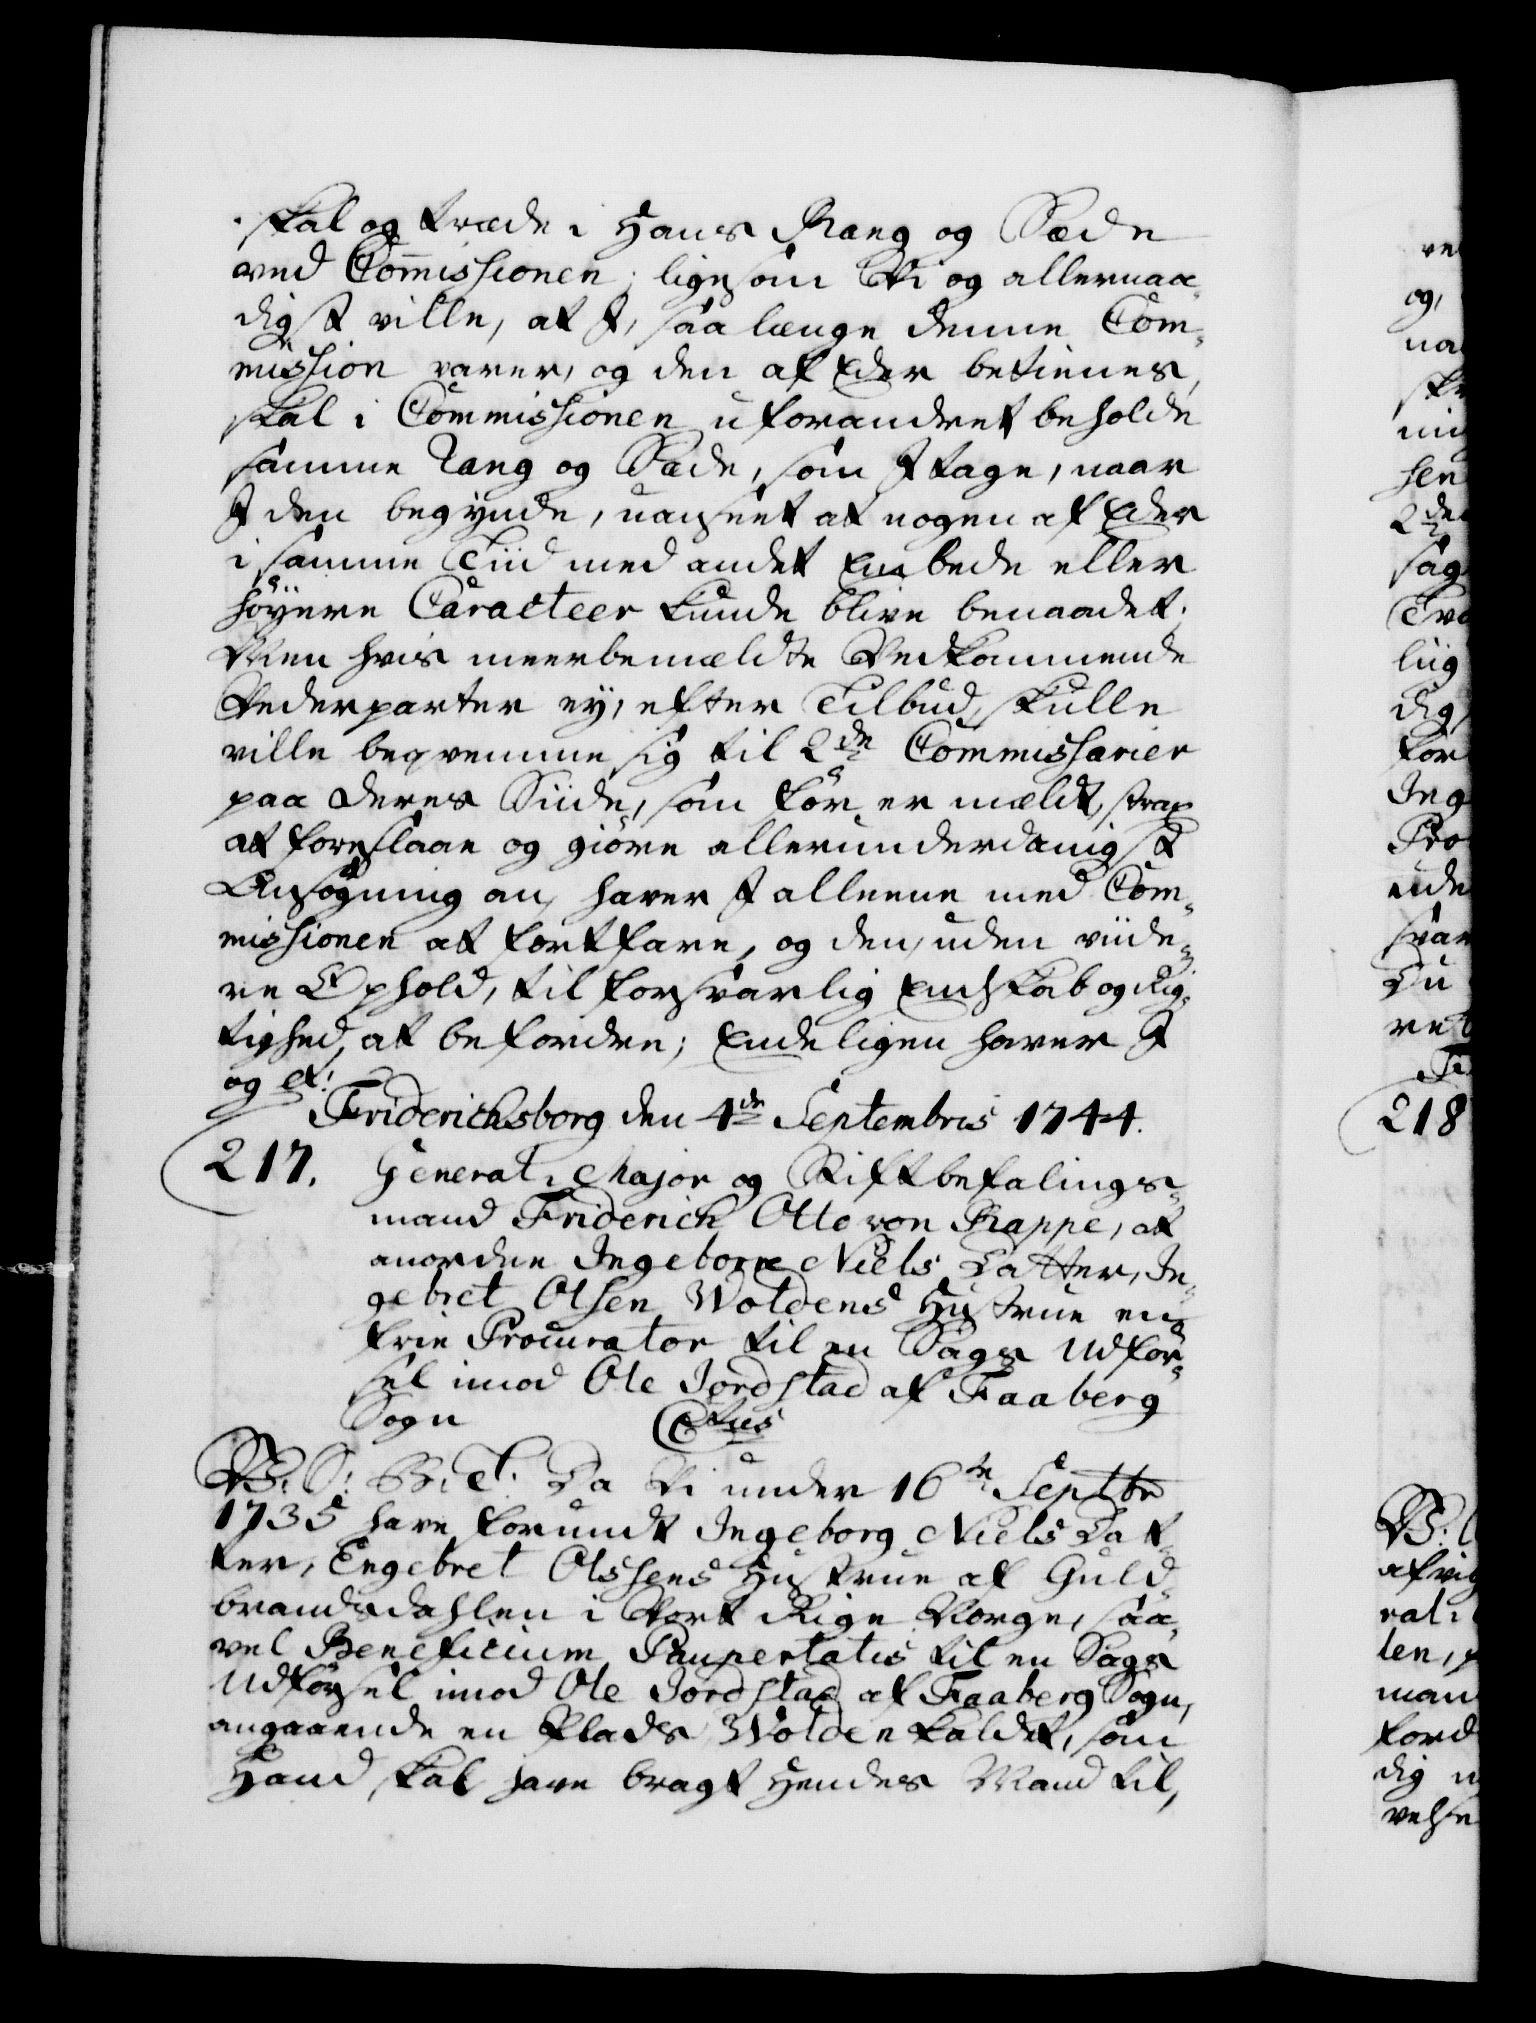 skal og træde i Hans Rang og Sæde
ved Commissionen; ligesom Vi og allernaa-
digst ville, at I, saa længe denne Com-
mission varer, og den af Eder betienes,
skal i Commissionen uforandret beholde
samme Rang og Sæde, som I tage, naar
I den begynde, uanseet at nogen af Eder
i samme Tiid med andet Embede eller
høyere Caracteer kunde blive benaadet.
Men hvis meerbemældte Vedkommende
Vederparter ey, efter Tilbud, skulle
ville beqvemme sig til 2de Commissarier
paa deres Siide, som før er mældt, strax
at foreslaae og giøre allerunderdanigst
Ansøgning om, haver I alleene med Com-
missionen at fortfare, og den, uden viide-
re Ophold, til forsvarlig Endskab og Rig-
tighed, at befordre; Endeligen haver I
og &:
Friderichsborg den 4de Septembris 1744.
217. General-Major og Stiftbefalings-
mand Friderich Otto von Rappe, at
anordne Ingeborre Niels Datter, In-
gebret Olsen Woldens Hustrue en
frie Procurator til en Sags Udfør-
sel imod Ole Jordstad af Faaberg
Sogn
V. G: B. T. Da Vi under 16de Septbr
1735 have forundt Ingeborg Niels Dat-
ter, Engebret Olssens Hustrue af Guld-
brandsdahlen i Vort Rige Norge, saa-
vel Beneficium Paupertatis til en Sags
Udførsel imod Ole Jordstad af Faaberg Sogn,
angaaende en Plads Wolden kaldet, som
Hand skal have bragt Hendes Mand til,
218